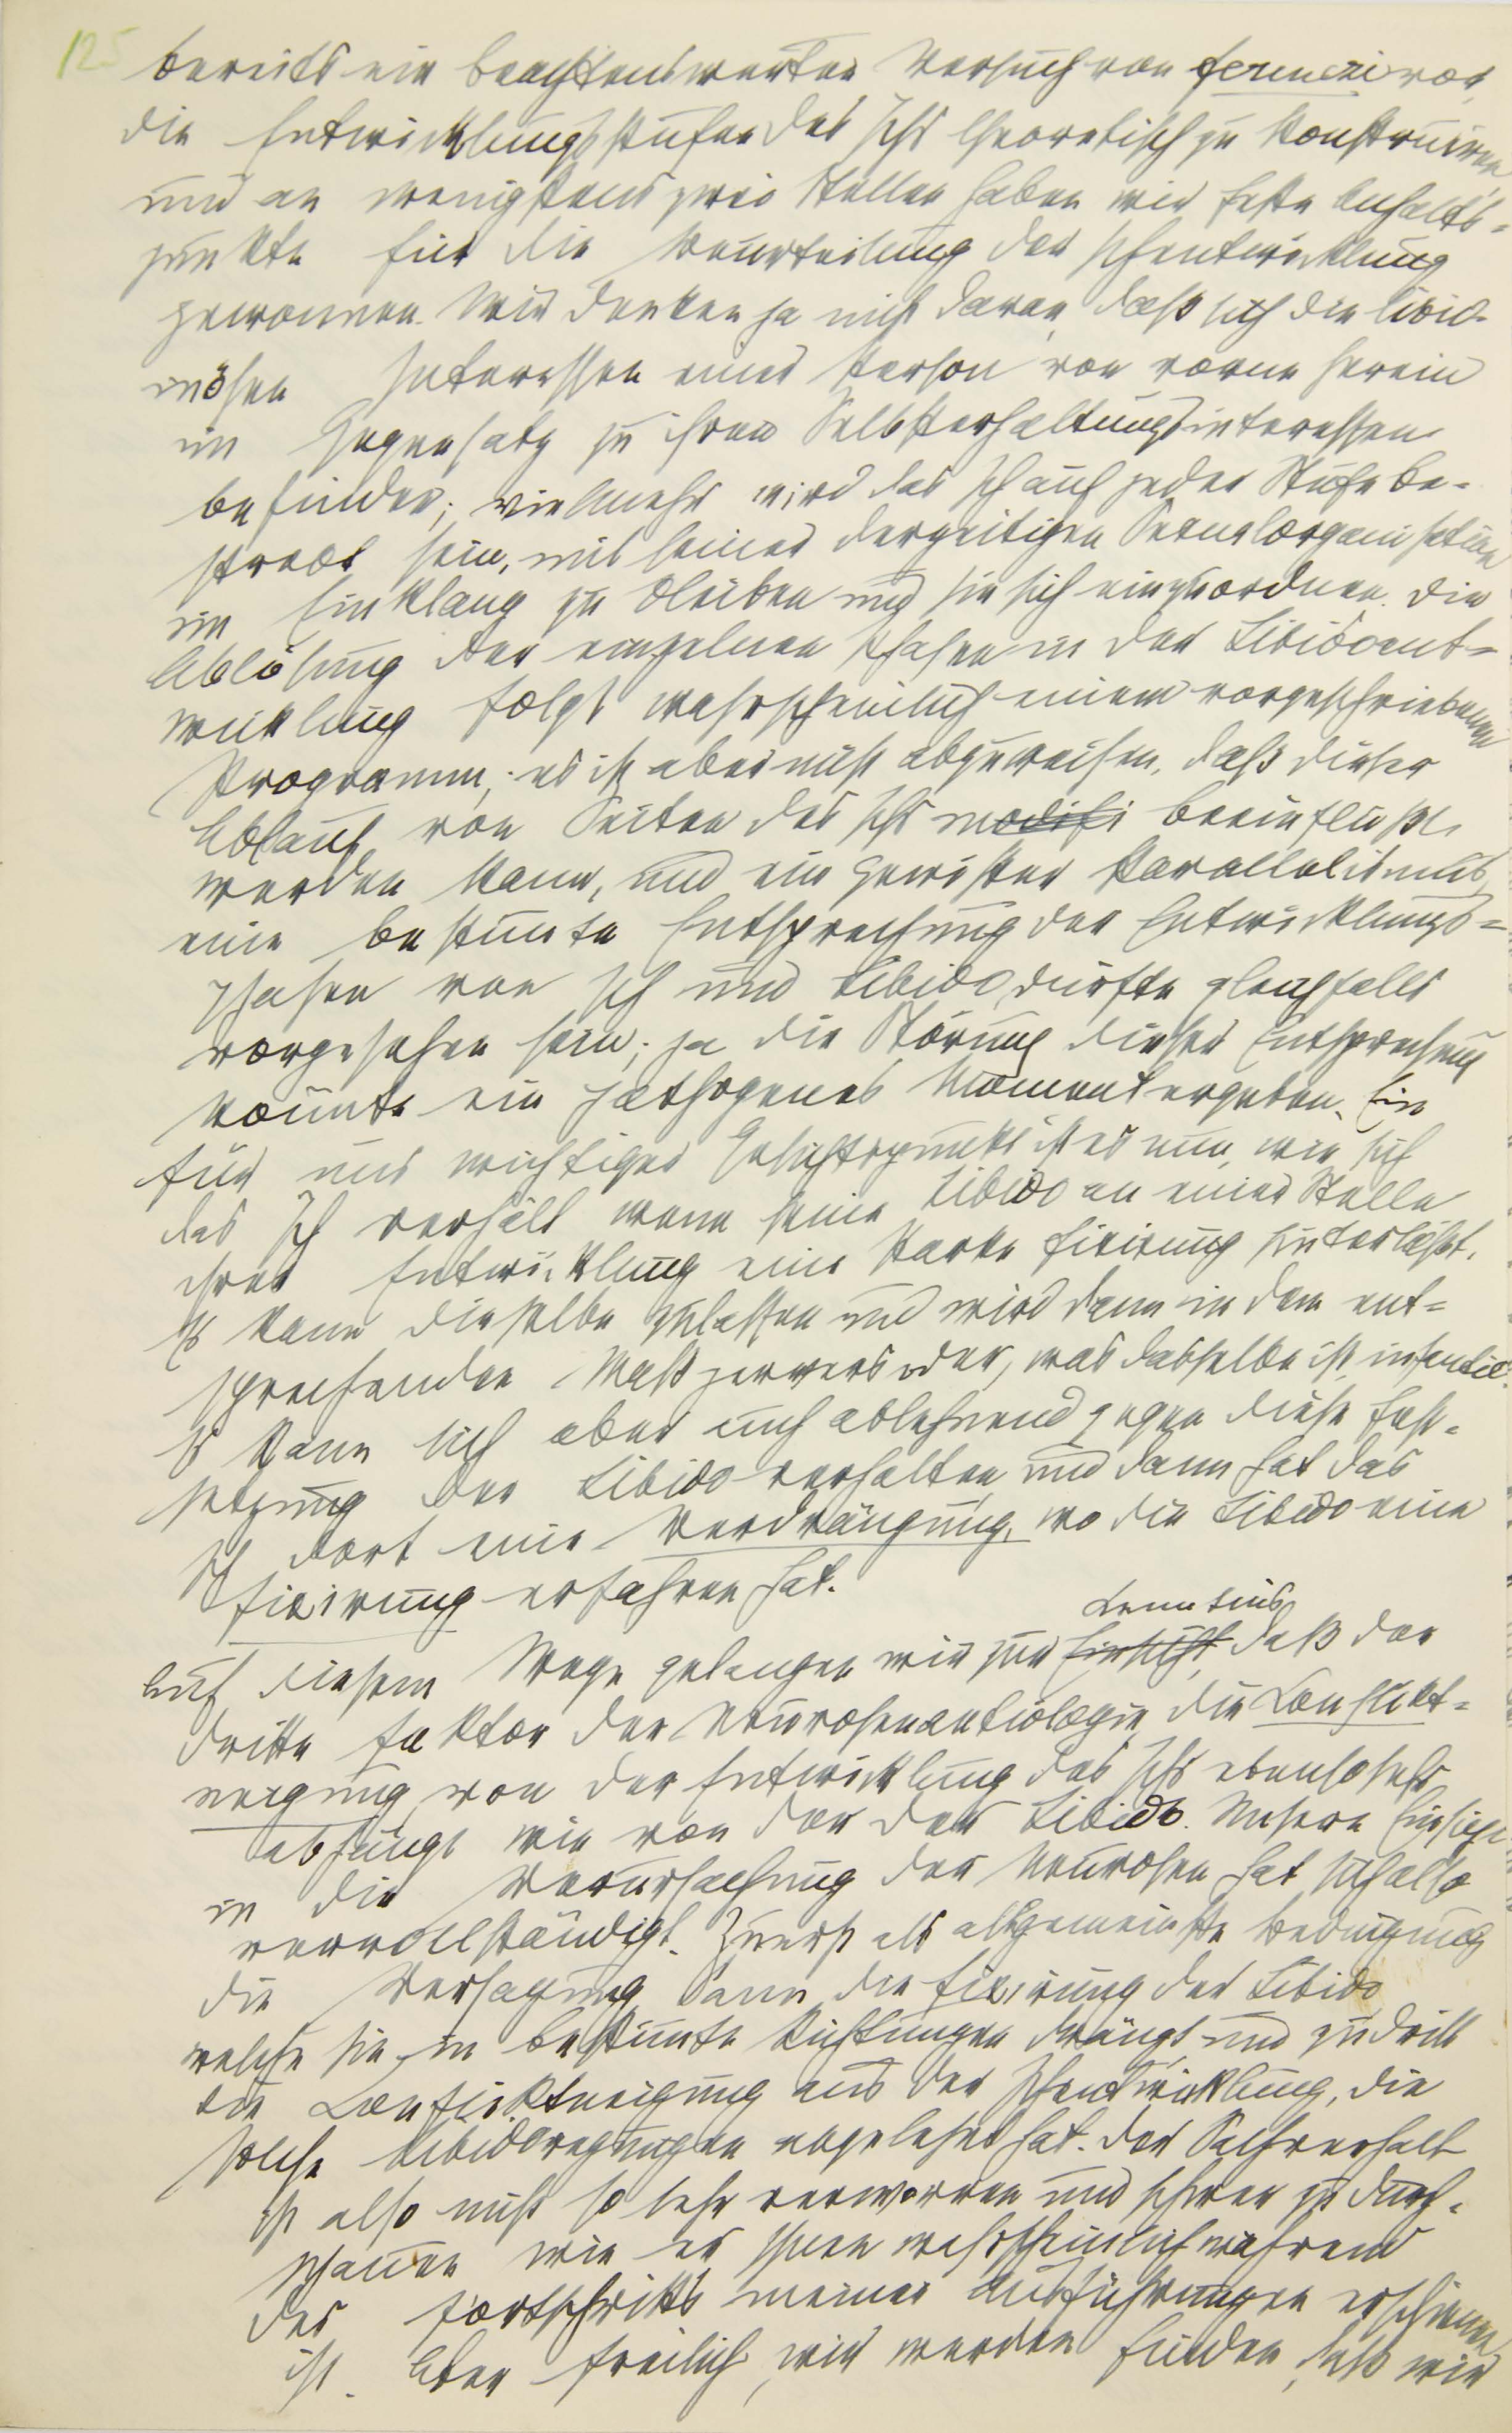 125
bereits ein beachtenswerter Versuch von Ferenczi vor,
die Entwicklungsstufen des Ichs theoretisch zu konstruiren
und an wenigstens zwei Stellen haben wir feste Anhalts=
punkte für die Beurteilung der Ichentwicklung
gewonnen. Wir denken ja nicht daran, daß sich die libidi-
nösen Interessen einer Person von vorne herein
im Gegensatz zu ihren Selbsterhaltungsinteressen
befinden; vielmehr wird das Ich auf jeder Stufe be-
strebt sein, mit seiner derzeitigen Sexualorganisation
im Einklang zu bleiben und sie sich einzuordnen. Die
Ablösung der einzelnen Phasen in der Libidoent=
wicklung folgt wahrscheinlich einem vorgeschriebenen
Programm; es ist aber nicht abzuweisen, daß dieser
Ablauf von Seiten des Ichs modifi beeinflußt
werden kann, und ein gewisser Parallelismus,
eine bestimmte Entsprechung der Entwicklungs=
phasen von Ich und Libido dürfte gleichfalls
vorgesehen sein; ja die Störung dieser Entsprechung
könnte ein pathogenes Moment ergeben. Ein
für uns wichtiger Gesichtspunkt ist es nun, wie sich
das Ich verhält wenn seine Libido an einer Stelle
ihrer Entwicklung eine starke Fixirung hinterläßt.
Es kann dieselbe zulassen und wird dann in dem ent=
sprechenden Maß pervers oder, was dasselbe ist, infantil.
Es kann sich aber auch ablehnend gegen diese Fest-
setzung der Libido verhalten und dann hat das
Ich dort eine Verdrängung, wo die Libido eine
Fixirung erfahren hat.
Kenntnis
Auf diesem Wege gelangen wir zur Einsicht, daß der
dritte Faktor der Neurosenaetiologie, die Konflikt=
neigung von der Entwicklung des Ichs ebensosehr
abhängt wie von der der Libido. Unsere Einsicht
in die Verursachung der Neurosen hat sich also
vervollständigt. Zuerst als allgemeinste Bedingung
die Versagung, dann die Fixirung der Libido,
welche sie in bestimmte Richtungen drängt und zu dritt
die Konfliktneigung aus der Ichentwicklung, die
solche Libidoregungen abgelehnt hat. Der Sachverhalt
ist also nicht so sehr verworren und schwer zu durch-
schauen wie es Ihnen wahrscheinlich während
des Fortschritts meiner Ausführungen erschienen
ist. Aber freilich, wir werden finden, daß wir